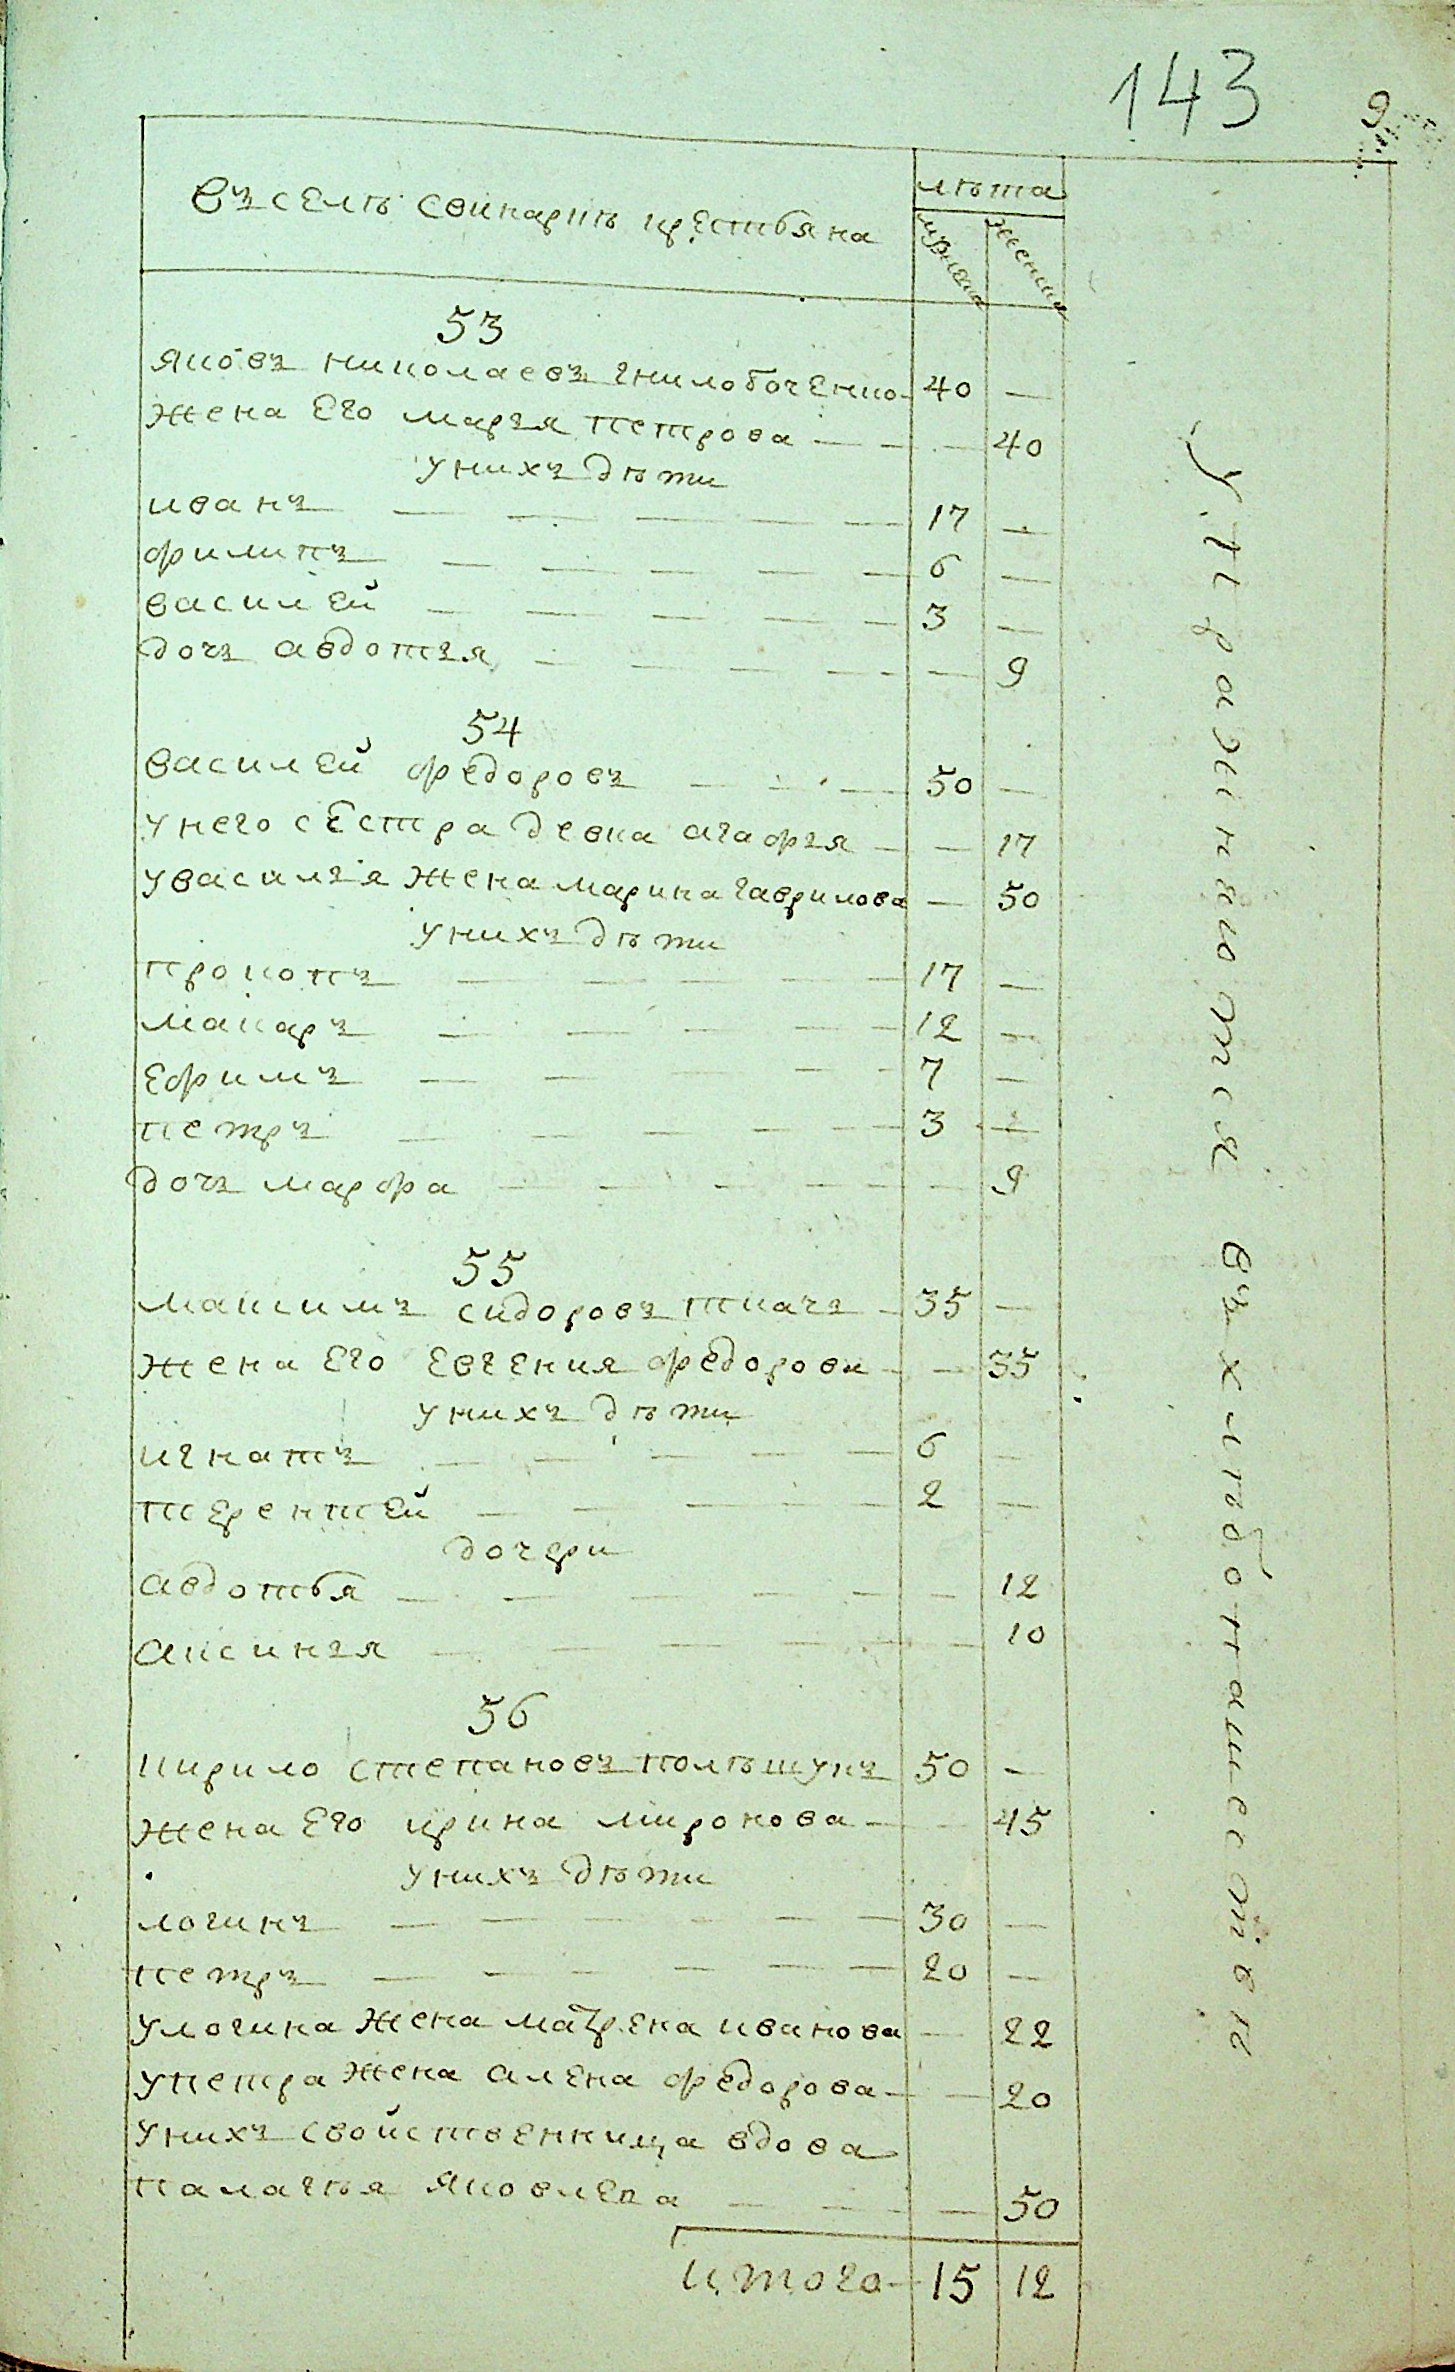 143
9
въ селѣ свинарнѣ крестьяна
лѣта
мужеска
женска
53
яковъ николаевъ гнилобоченко 40 —
жена Его марья петрова — 40
у нихъ дѣти
иванъ 17 —
филипъ 6 —
василей 3 —
дочь авдотья — 9
54
василей федоровъ 50 —
у него сестра девка агафья — 17
у василья жена марина гаврилова — 50
у нихъ дѣти
прокопъ 17 —
макаръ 12 —
Ефимъ 7 —
петръ 3 —
дочь марфа — 9
55
макимъ сидоровъ ткачъ 35 —
жена Его Евгения федорова — 35
у нихъ дѣти
игнатъ 6 —
терентей 2 —
дочери
авдотья — 12
аксинья — 10
56
кирило степановъ полѣшукъ 50 —
жена Его ирина миронова — 45
у нихъ дѣти
логинъ 30 —
петръ 20 —
у логина жена матрена иванова — 22
у петра жена алена федорова — 20
у нихъ свойственница вдова
палагѣя яковлева — 50
итого 15 12
Упражняются въ хлѣбопашествѣ